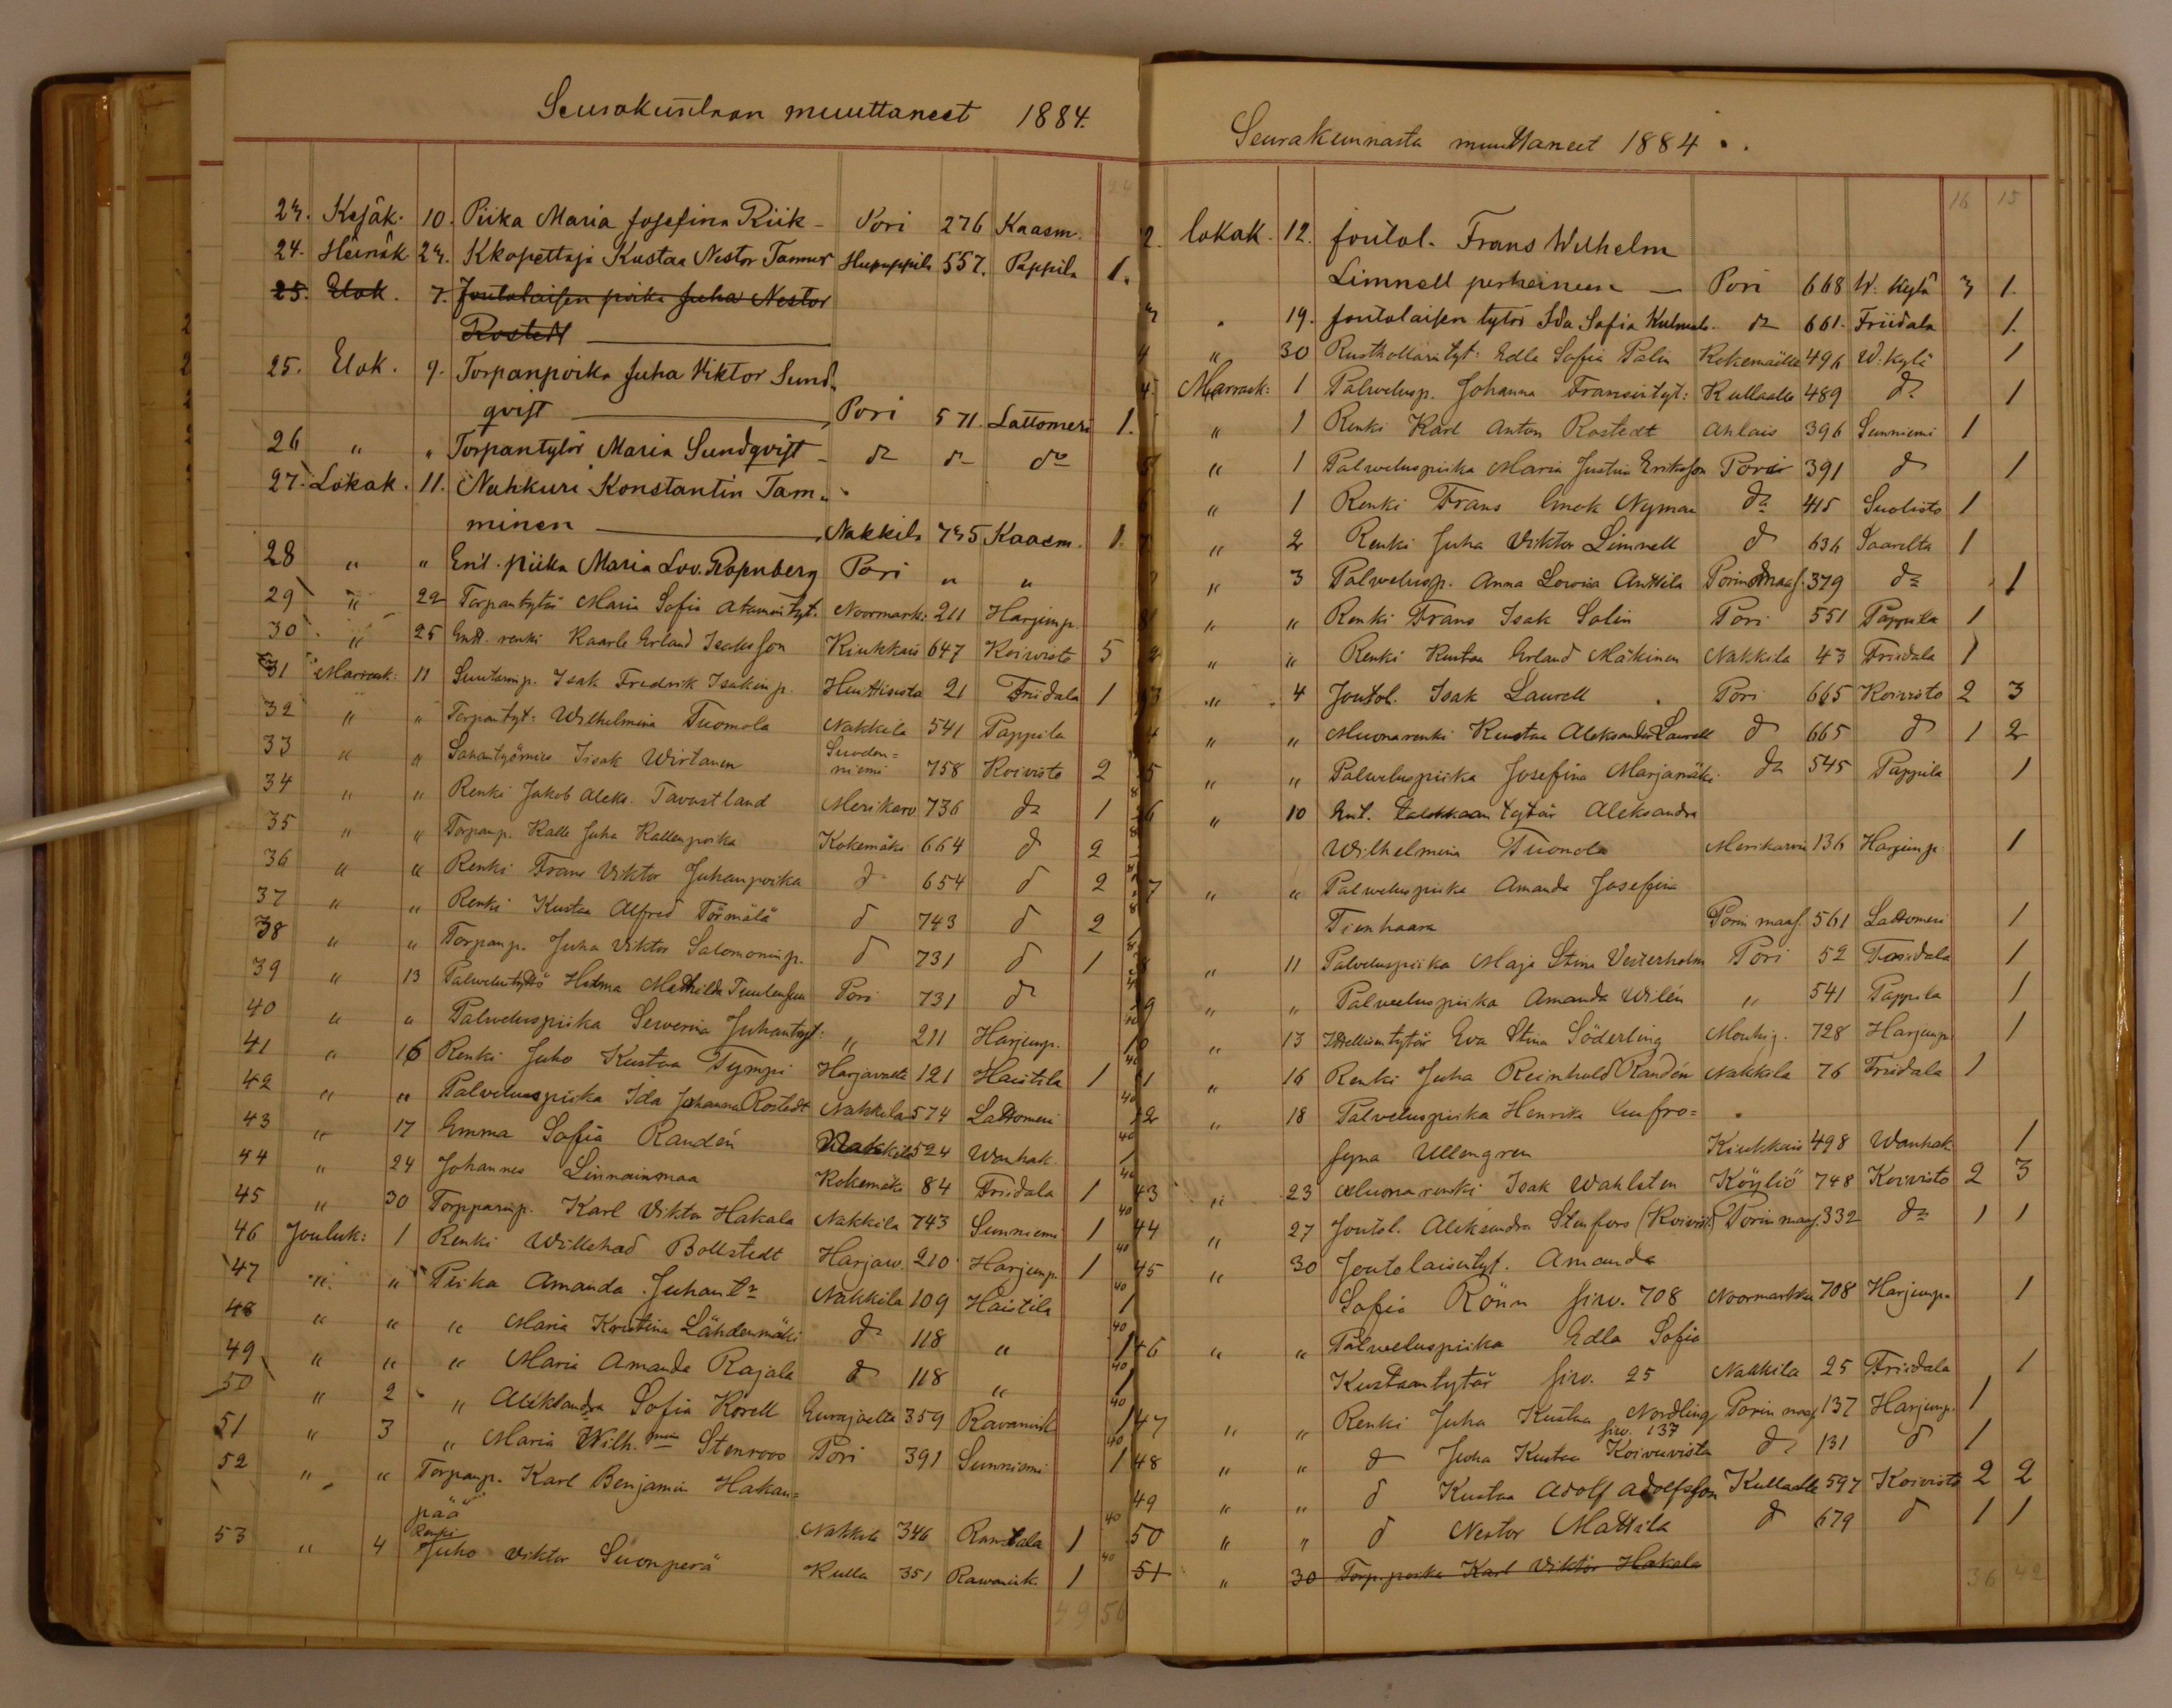 Seurakuntaan muuttaneet 1884.
24
23. Kesäk. 10. Piika Maria Josefina Riik- Pori 276 Kaasm.
24. Heinäk 23. Kkopettaja Kustaa Nestor Tammer 557. Pappila 1.
25. Elok. 7. Joutolaisen poika Juha Nestor
Rostedt
25. Elok. 9. Torpanpoika Juha Viktor Sund-
qvist Pori 571. Lattomeri 1.
26 " " Torpantytör Maria Sundqvist do do do
27. Lokak. 11. Nahkuri Konstantin Tam-
minen Nakkila 735 Kaasm. 1.
28 " " Ent. piika Maria Lov. Rosenberg Pori " "
29 " 22 Torpantytär Maria Sofia Atamintyt. Noormark. 211 Harjunp.
30 " 25 Entt. renki Kaarle Erland Isaksson Kiukkais 647 Koivisto 5
31 Marrask: 11 Suutarinp. Isak Fredrik Isakinp. Huittisista 21 Friidala 1
32 " " Torpantyt: Wilhelmina Tuomola Nakkila 541 Pappila
33 " " Sahantyömies Iisak Wirtanen Suoden=
niemi 758 Koivisto 2
34 " " Renki Jakob Aleks. Tavastland Merikarv 736 do 1
35 " " Torpanp. Kalle Juha Kallenpoika Kokemäki 664 d 2
36 " " Renki Frans Viktor Juhanpoika d 654 d 2
37 " " Renki Kustaa Alfred Törmälä d 743 d 2
38 " " Torpanp. Juha Viktor Salomoninp. d 731 d 1
39 " 13 Hilma Mathilda Pori 731 do
40 " " Palveluspiika Severina Juhantyt: " 211 Harjunp.
41 " 16 Renki Juho Kustaa Tympi Harjavalta 121 Haistila 1
42 " " Palveluspiika Ida Johanna Rostedt Nakkila 574 Lattomeri
43 " 17 Emma Sofia Randén Nakkila 524 Wanhak.
44 " 24 Johannes Linnainmaa Kokemäki 84 Friidala 1
45 " 30 Torpparinp. Karl Viktor Hakala Nakkila 743 Sunniemi 1
46 Jouluk: 1 Renki Willehad Bollstedt Harjav. 210 Harjunp. 1
47 " " Piika Amanda Juhant. Nakkila 109 Haistila
48 " " " Maria Kristina Lähdenmäki do 118 "
49 " " " Maria Amanda Rajala d 118 "
50 " 2 " Aleksandra Sofia Korell Eurajoelta 359 Ravanink
51 " 3 " Maria Wilh.mina Stenroos Pori 391 Sunniemi
52 " " Torpanp. Karl Benjamin Hakan=
pää Nakkila 346 Ranttala 1
53 " 4 Renki
Juho Viktor Suonperä Kulla 351 Ravanink 1
49 56
Seurakunnasta muuttaneet 1884.
16 15
2. lokak. 12. joutol. Frans Wilhelm
Limnell perheineen — Pori 668 W. kylä 3 1.
3 " 19. joutolaisen tytör Ida Sofia do 661. Friidala 1.
4 " 30 Rusthollarityt: Edla Sofia Palin Kokemäelle 496 W. kylä 1
Marrask: 1 Palvelusp. Johanna Fransintyt: Kullaalle 489 do 1
" 1 Renki Karl Anton Rostedt Ahlais 396 Sunniemi 1
" 1 Palveluspiika Maria Justina Eriksson Poriin 391 d 1
" 1 Renki Frans Enok Nyman do 415 Suolisto 1
" 2 Renki Juha Viktor Limnell d 636 Saarelta 1
" 3 Palvelusp. Anna Lovisa Anttila Porin maas. 379 do 1
" " Renki Frans Isak Salin Pori 551 Pappila 1
" " Renki Kustaa Erland Mäkinen Nakkila 43 Friidala 1
" 4 Joutol. Isak Laurell Pori 665 Koivisto 2 3
" " Muonarenki Kustaa Aleksander Laurell d 665 d 1 2
" " Palveluspiika Josefina Marjamäki do 545 Pappila 1
" 10 Ent. talokkaan tytär Aleksandra
Wilhelmina Tuomola Merikarvia 136 Harjunp. 1
7 " " Palveluspiika Amanda Josefina
Tienhaara Porin maas. 561 Lattomeri 1
" 11 Palveluspiika Maja Stina Vesterholm Pori 52 Friidala 1
" " Palveluspiika Amanda Wilén " 541 Pappila 1
" 13 Itsellisentytär Eva Stina Söderling Mouhij. 728 Harjunp. 1
" 16 Renki Juha Reinhold Randén Nakkila 76 Friidala 1
" 18 Palveluspiika Henrika Eufro=
syna Ullengren Kiukkais 498 Wanhak 1
43 " 23 Muonarenki Isak Wahlsten Köyliö 748 Koivisto 2 3
44 " 27 Joutol. Aleksandra Stenfors (Koivist.) Porin maas. 332 do 1 1
45 " 30 Joutolaisentyt. Amanda
Sofia Rönn siv. 708 Noormarkku 708 Harjunp. 1
46 " " Palveluspiika Edla Sofia
Kustaantytär siv. 25 Nakkila 25 Friidala 1
47 " " Renki Juha Kustaa Nordling Porin maas 137 Harjunp. 1
siv. 137
48 " " d Juha Kustaa Koivuvista do 131 d 1
49 " " d Kustaa Adolf Adolfsson Kullaalle 597 Koivisto 2 2
50 " " d Nestor Mattila d 679 d 1 1
51 " 30 Torp. poika Karl Viktor Hakala
36 42